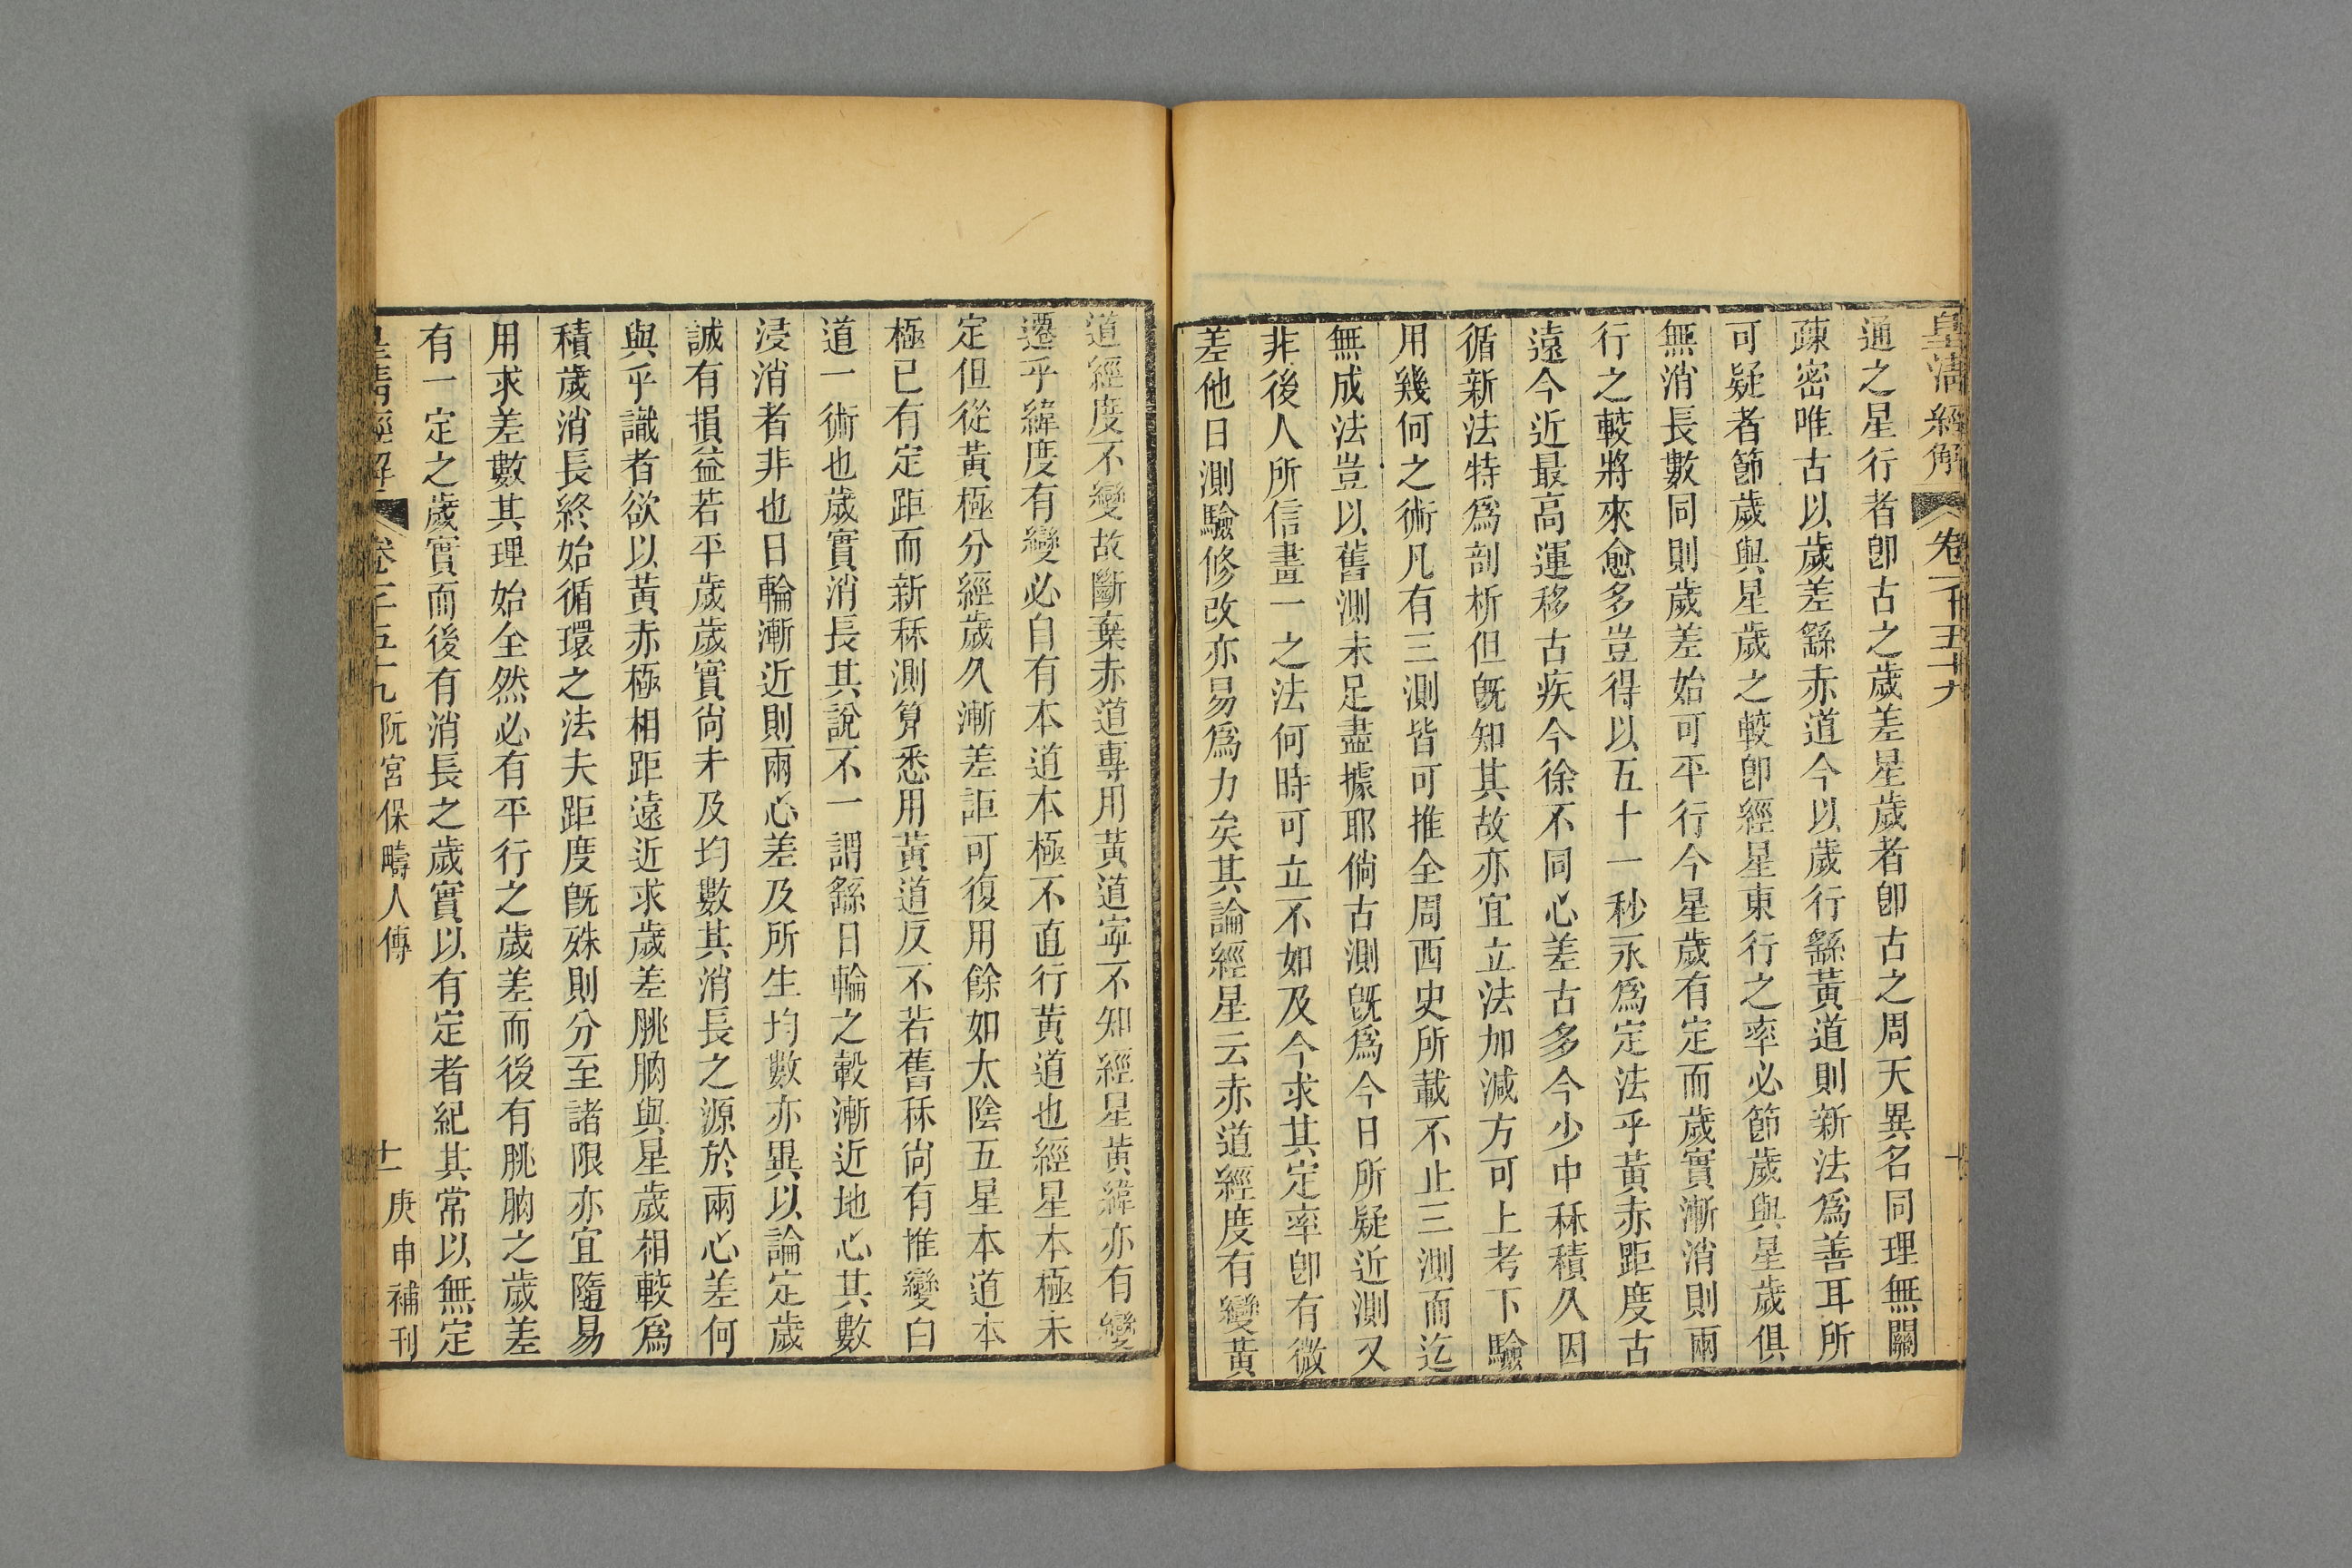 皇清經解 卷一千五十九 十
通之星行者卽古之歲差星歲者卽古之周天異名同理無關
疎密唯古以歲差繇赤道今以歲行繇黃道則新法爲善耳所
可疑者節歲與星歲之較卽經星東行之率必節歲與星歲俱
無消長數同則歲差始可平行今星歲有定而歲實漸消則兩
行之較將來愈多豈得以五十一秒永爲定法乎黃赤距度古
遠今近最高運移古疾今徐不同心差古多今少中秝積久因
循新法特爲剖析但旣知其故亦宜立法加減方可上考下驗
用幾何之術凡有三測皆可推全周西史所載不止三測而迄
無成法豈以舊測未足盡據耶倘古測旣爲今日所疑近測又
非後人所信畫一之法何時可立不如及今求其定率卽有微
差他日測驗修改亦易爲力矣其論經星云赤道經度有變黃
道經度不變故斷棄赤道專用黃道寧不知經星黃緯亦有變
遷乎緯度有變必自有本道本極不直行黃道也經星本極未
定但從黃極分經歲久漸差詎可復用餘如太陰五星本道本
極已有定距而新秝測算悉用黃道反不若舊秝尙有推變白
道一術也歲實消長其說不一謂繇日輪之轂漸近地心其數
浸消者非也日輪漸近則兩心差及所生均數亦異以論定歲
誠有損益若平歲歲實尙未及均數其消長之源於兩心差何
與乎識者欲以黃赤極相距遠近求歲差朓朒與星歲相較爲
積歲消長終始循環之法夫距度旣殊則分至諸限亦宜隨易
用求差數其理始全然必有平行之歲差而後有朓朒之歲差
有一定之歲實而後有消長之歲實以有定者紀其常以無定
皇清經解 卷一千五十九 阮宮保疇人傳 十一 庚申補刊